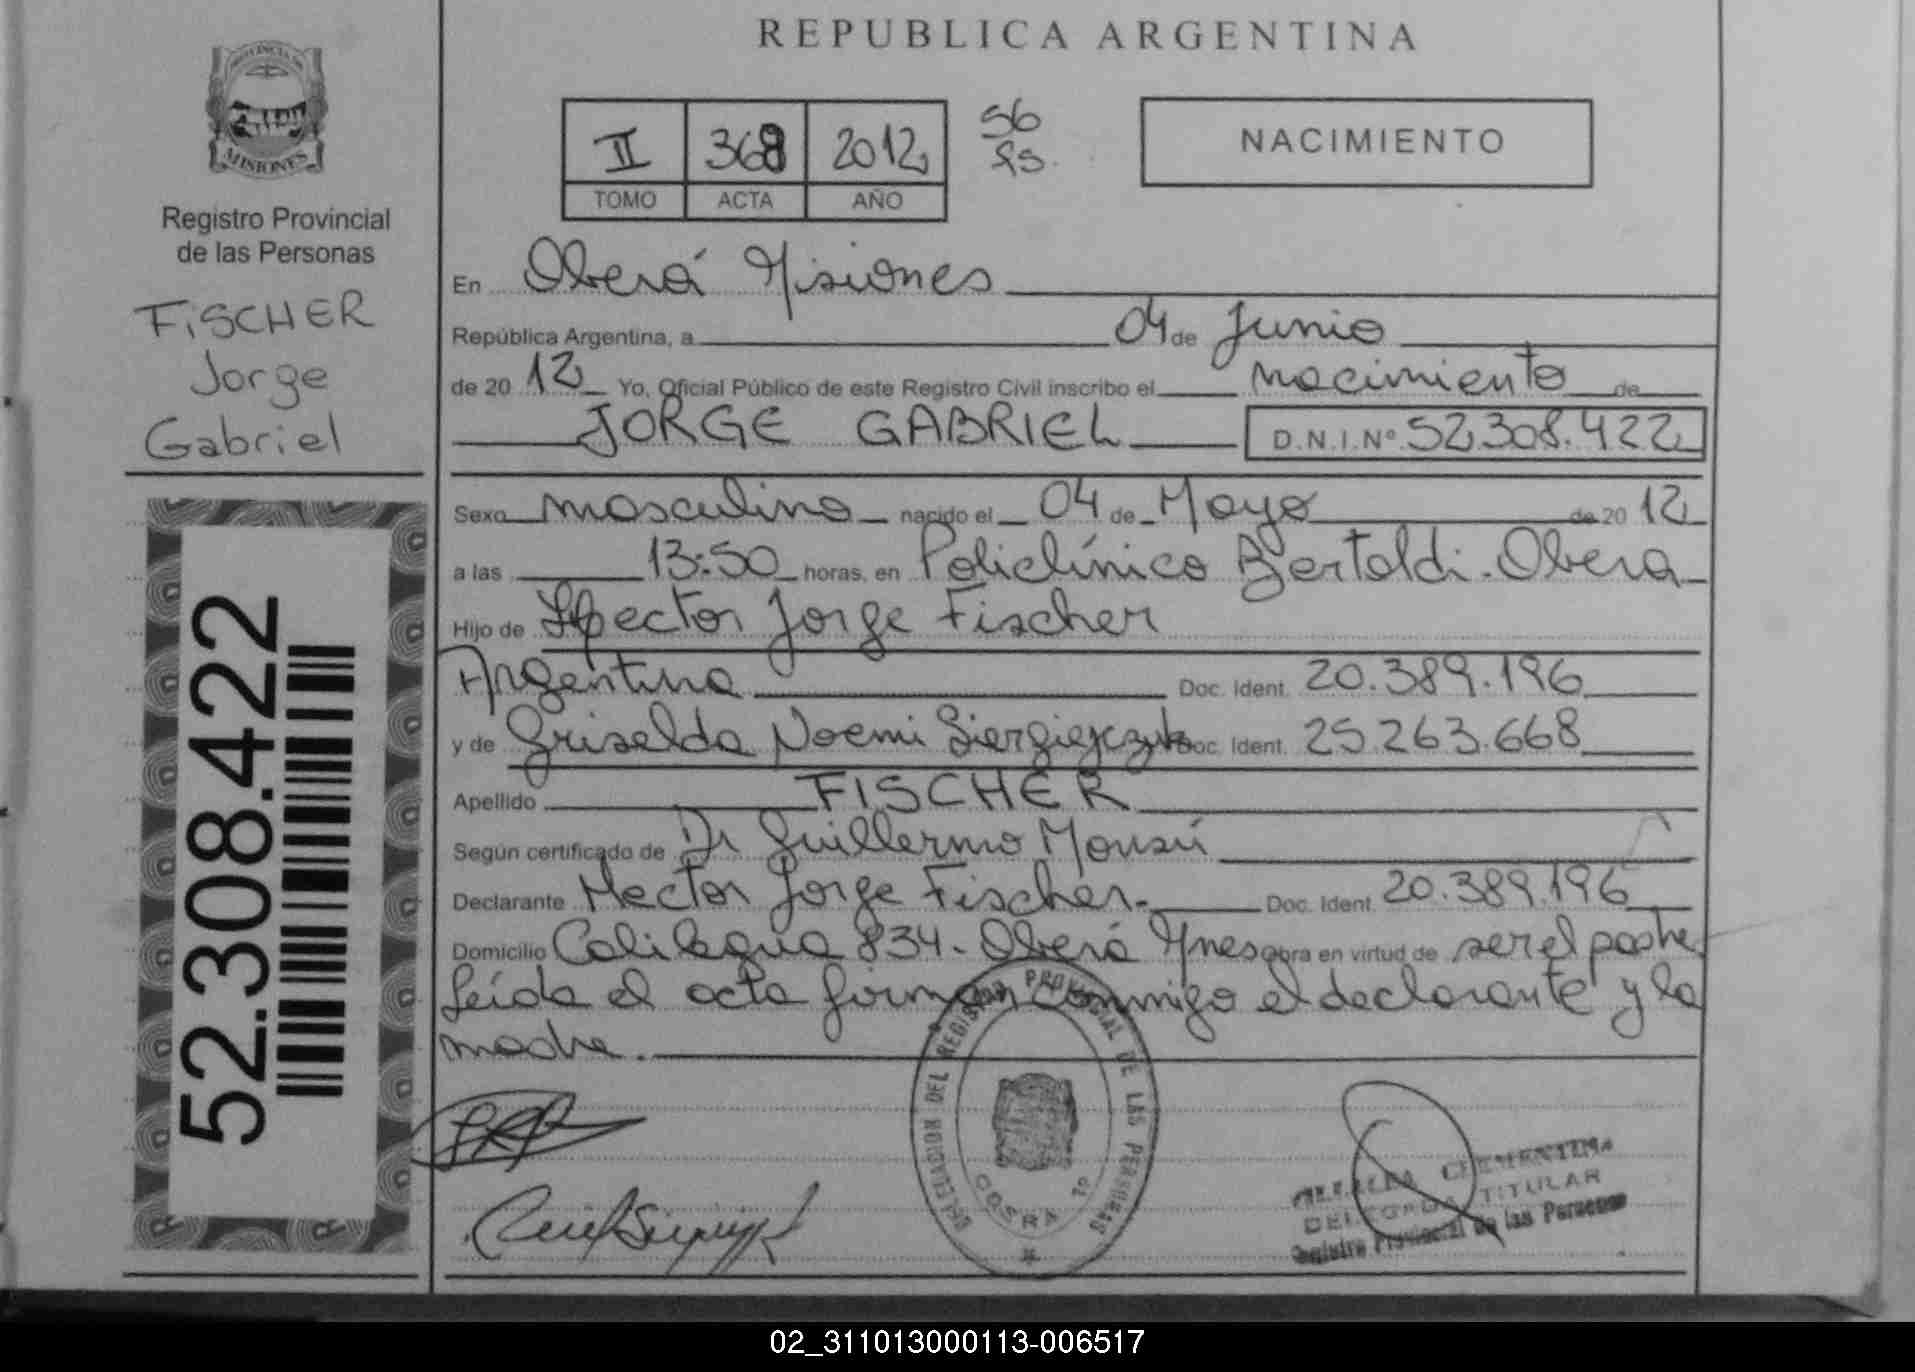 REPUBLICA ARGENTINA
PROVINCIA DE
MISIONES
Registro Provincial
de las Personas
FISCHER
Jorge
Gabriel
52.308.422
II 368 2012 56
TOMO ACTA AÑO
NACIMIENTO
En Oberá Misiones
República Argentina, a 04 de Junio
de 20 12 Yo, Oficial Público de este Registro Civil inscribo el nacimiento de
JORGE GABRIEL D.N.I.Nº 52.308.422
Sexo masculino nacido el 04 de Mayo de 20 12
a las 13:50 horas, en Policlínico Bertoldi. Obera
Hijo de Hector Jorge Fischer
Argentina Doc. Ident. 20.389.196
y de Griselda Noemi Siergiejczuk Doc. Ident. 25.263.668
Apellido FISCHER
Según certificado de Dr Guillermo
Declarante Hector Jorge Fischer. Doc. Ident. 20.389.196
Domicilio Calilegua 834 - Oberá Mnes obra en virtud de ser el padre
Leída el acta firman conmigo el declarante y la
madre.
DELEGACION DEL REGISTRO PROVINCIAL DE LAS PERSONAS
OBERA
CLEMENTINA
DELEGADA TITULAR
Registro Provincial de las Personas
02_311013000113-006517